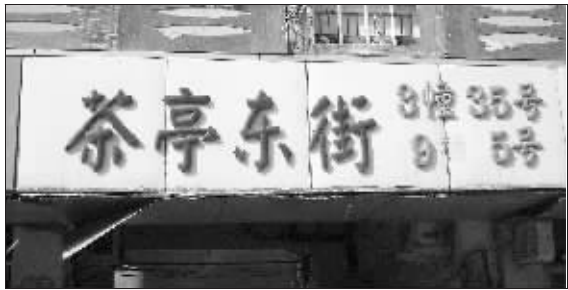 茶亭东街
3幢 35号
9 5号